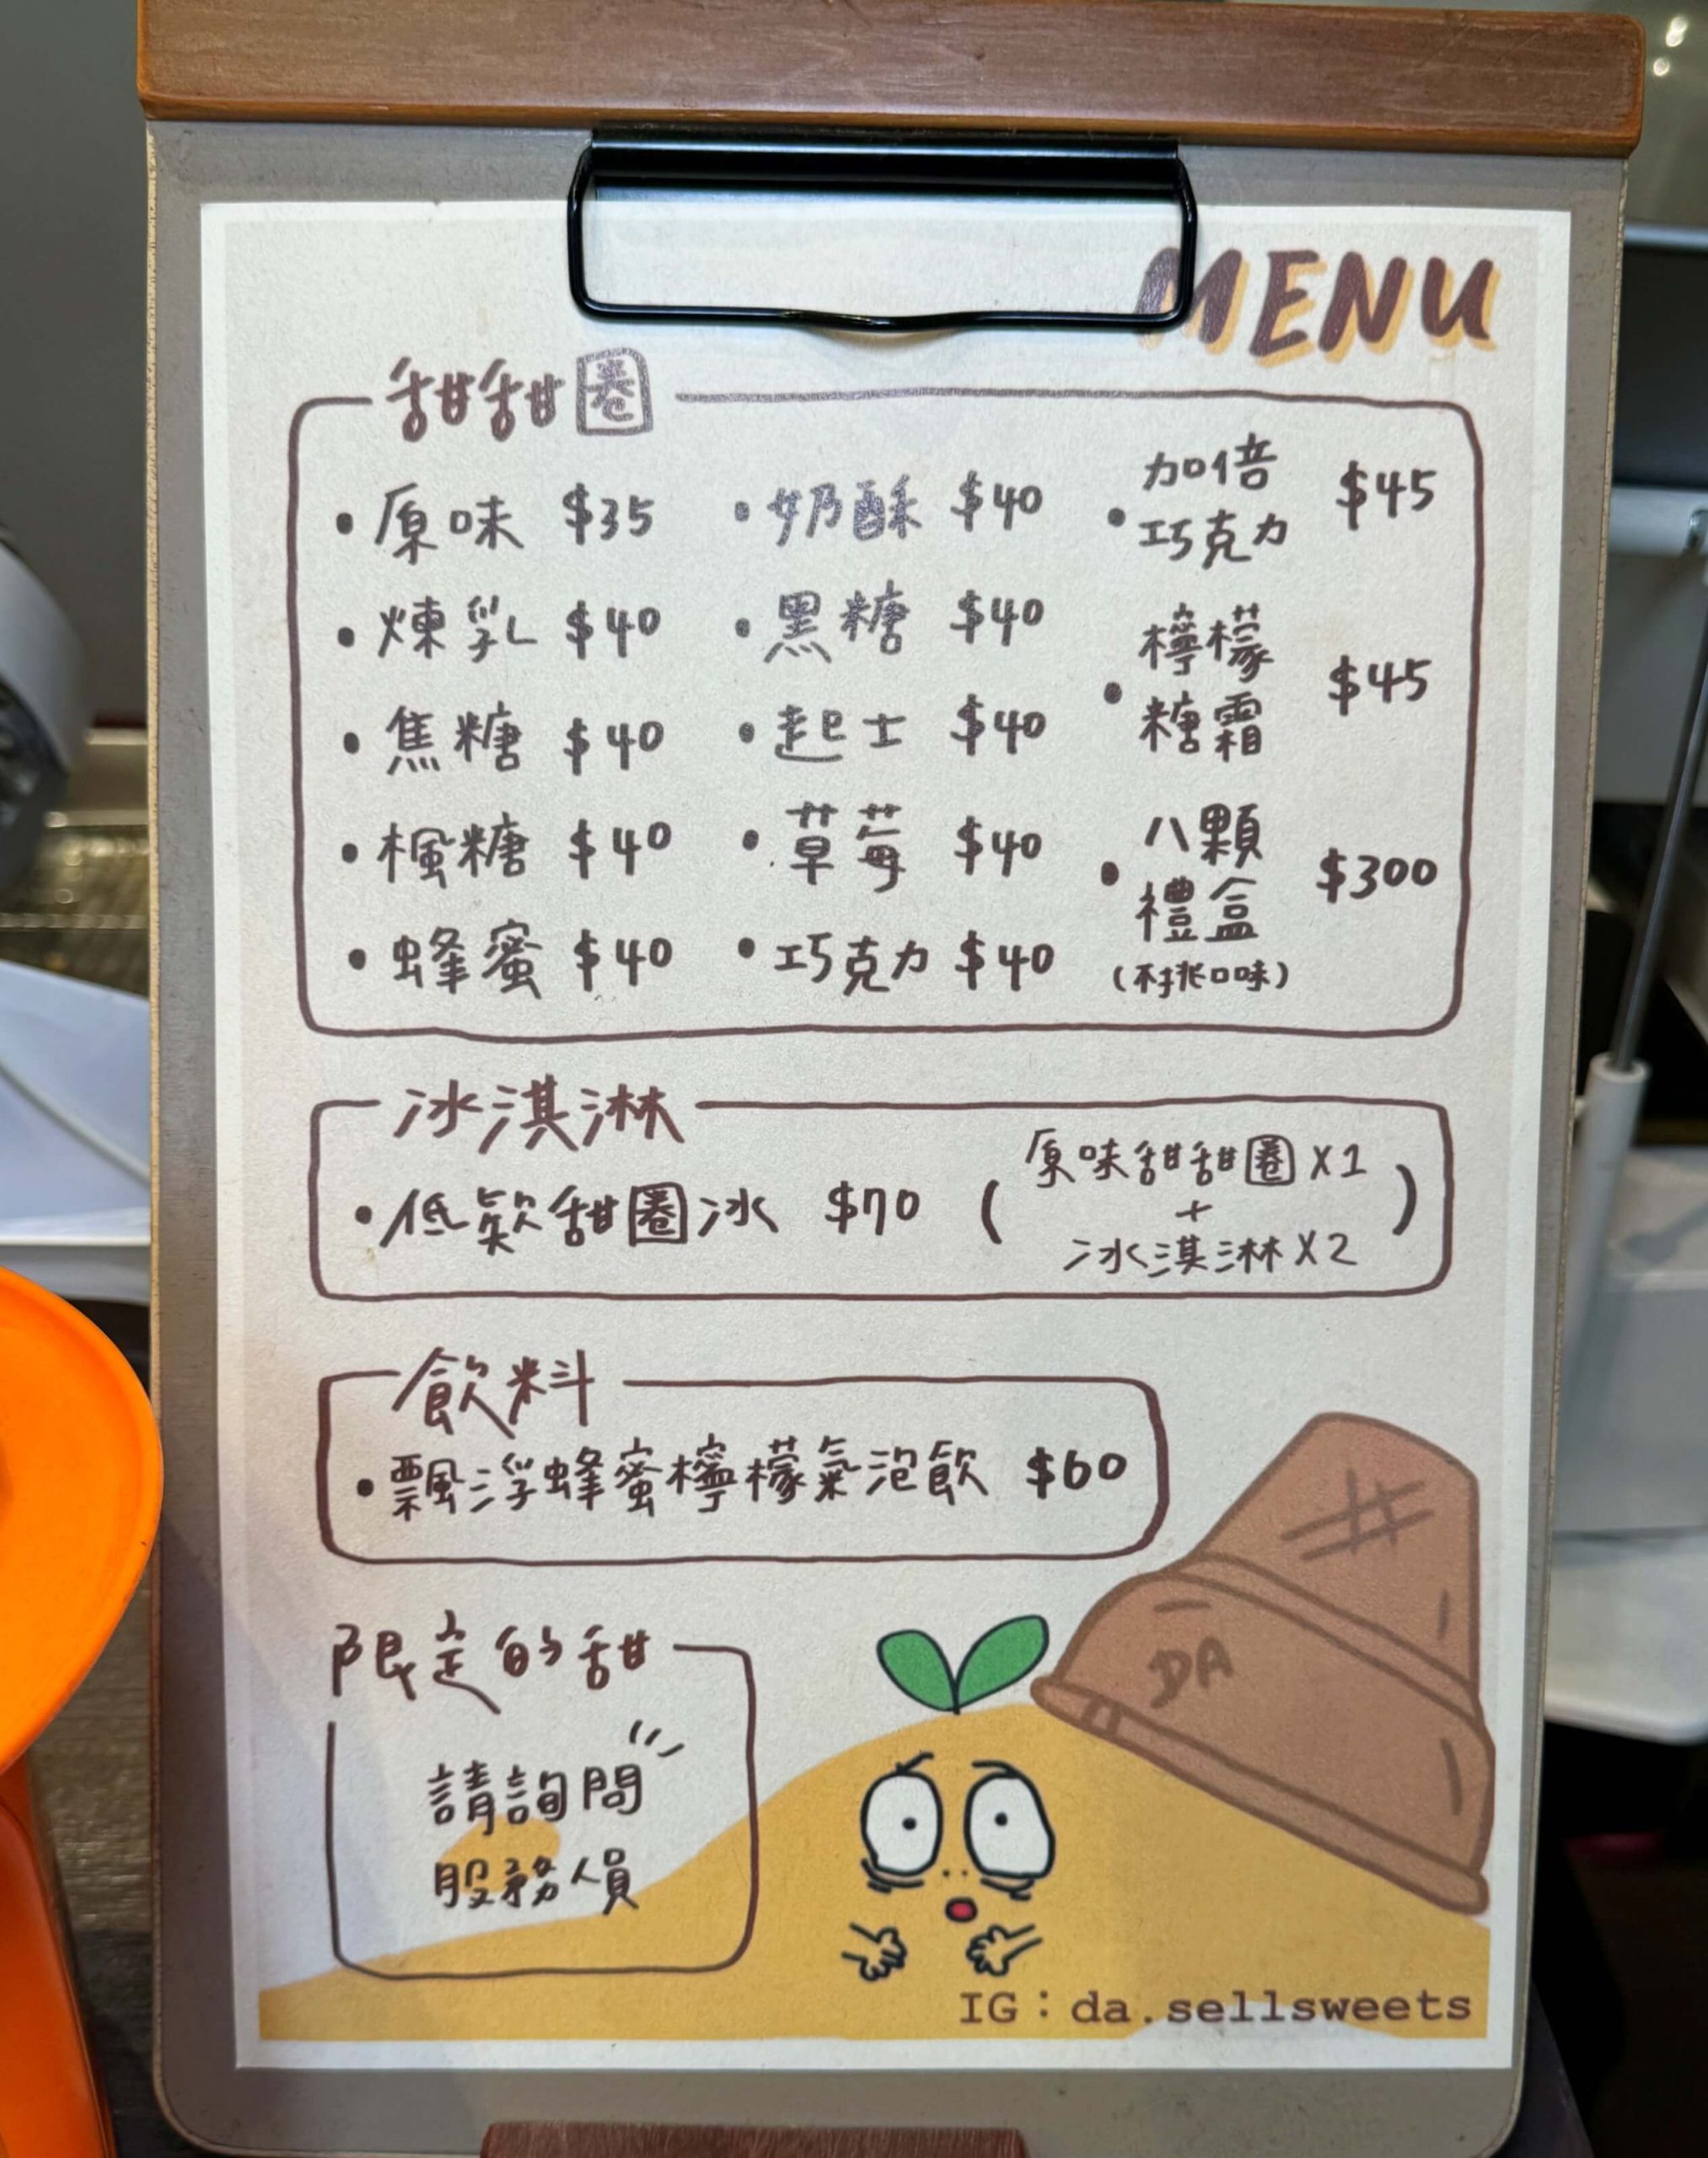 MENU
甜甜圈
・原味 $35
・煉乳 $40
・焦糖 $40
・楓糖 $40
・蜂蜜 $40
・奶酥 $40
・黑糖 $40
・起士 $40
・草莓 $40
・巧克力 $40
・加倍
巧克力 $45
・檸檬
糖霜 $45
・八顆
禮盒 $300
(不挑口味)
冰淇淋
・低歎甜圈冰 $70
(原味甜甜圈X1
+
冰淇淋X2)
飲料
・飄浮蜂蜜檸檬氣泡飲 $60
限定的甜
請詢問
服務人員
DA
IG：da.sellsweets